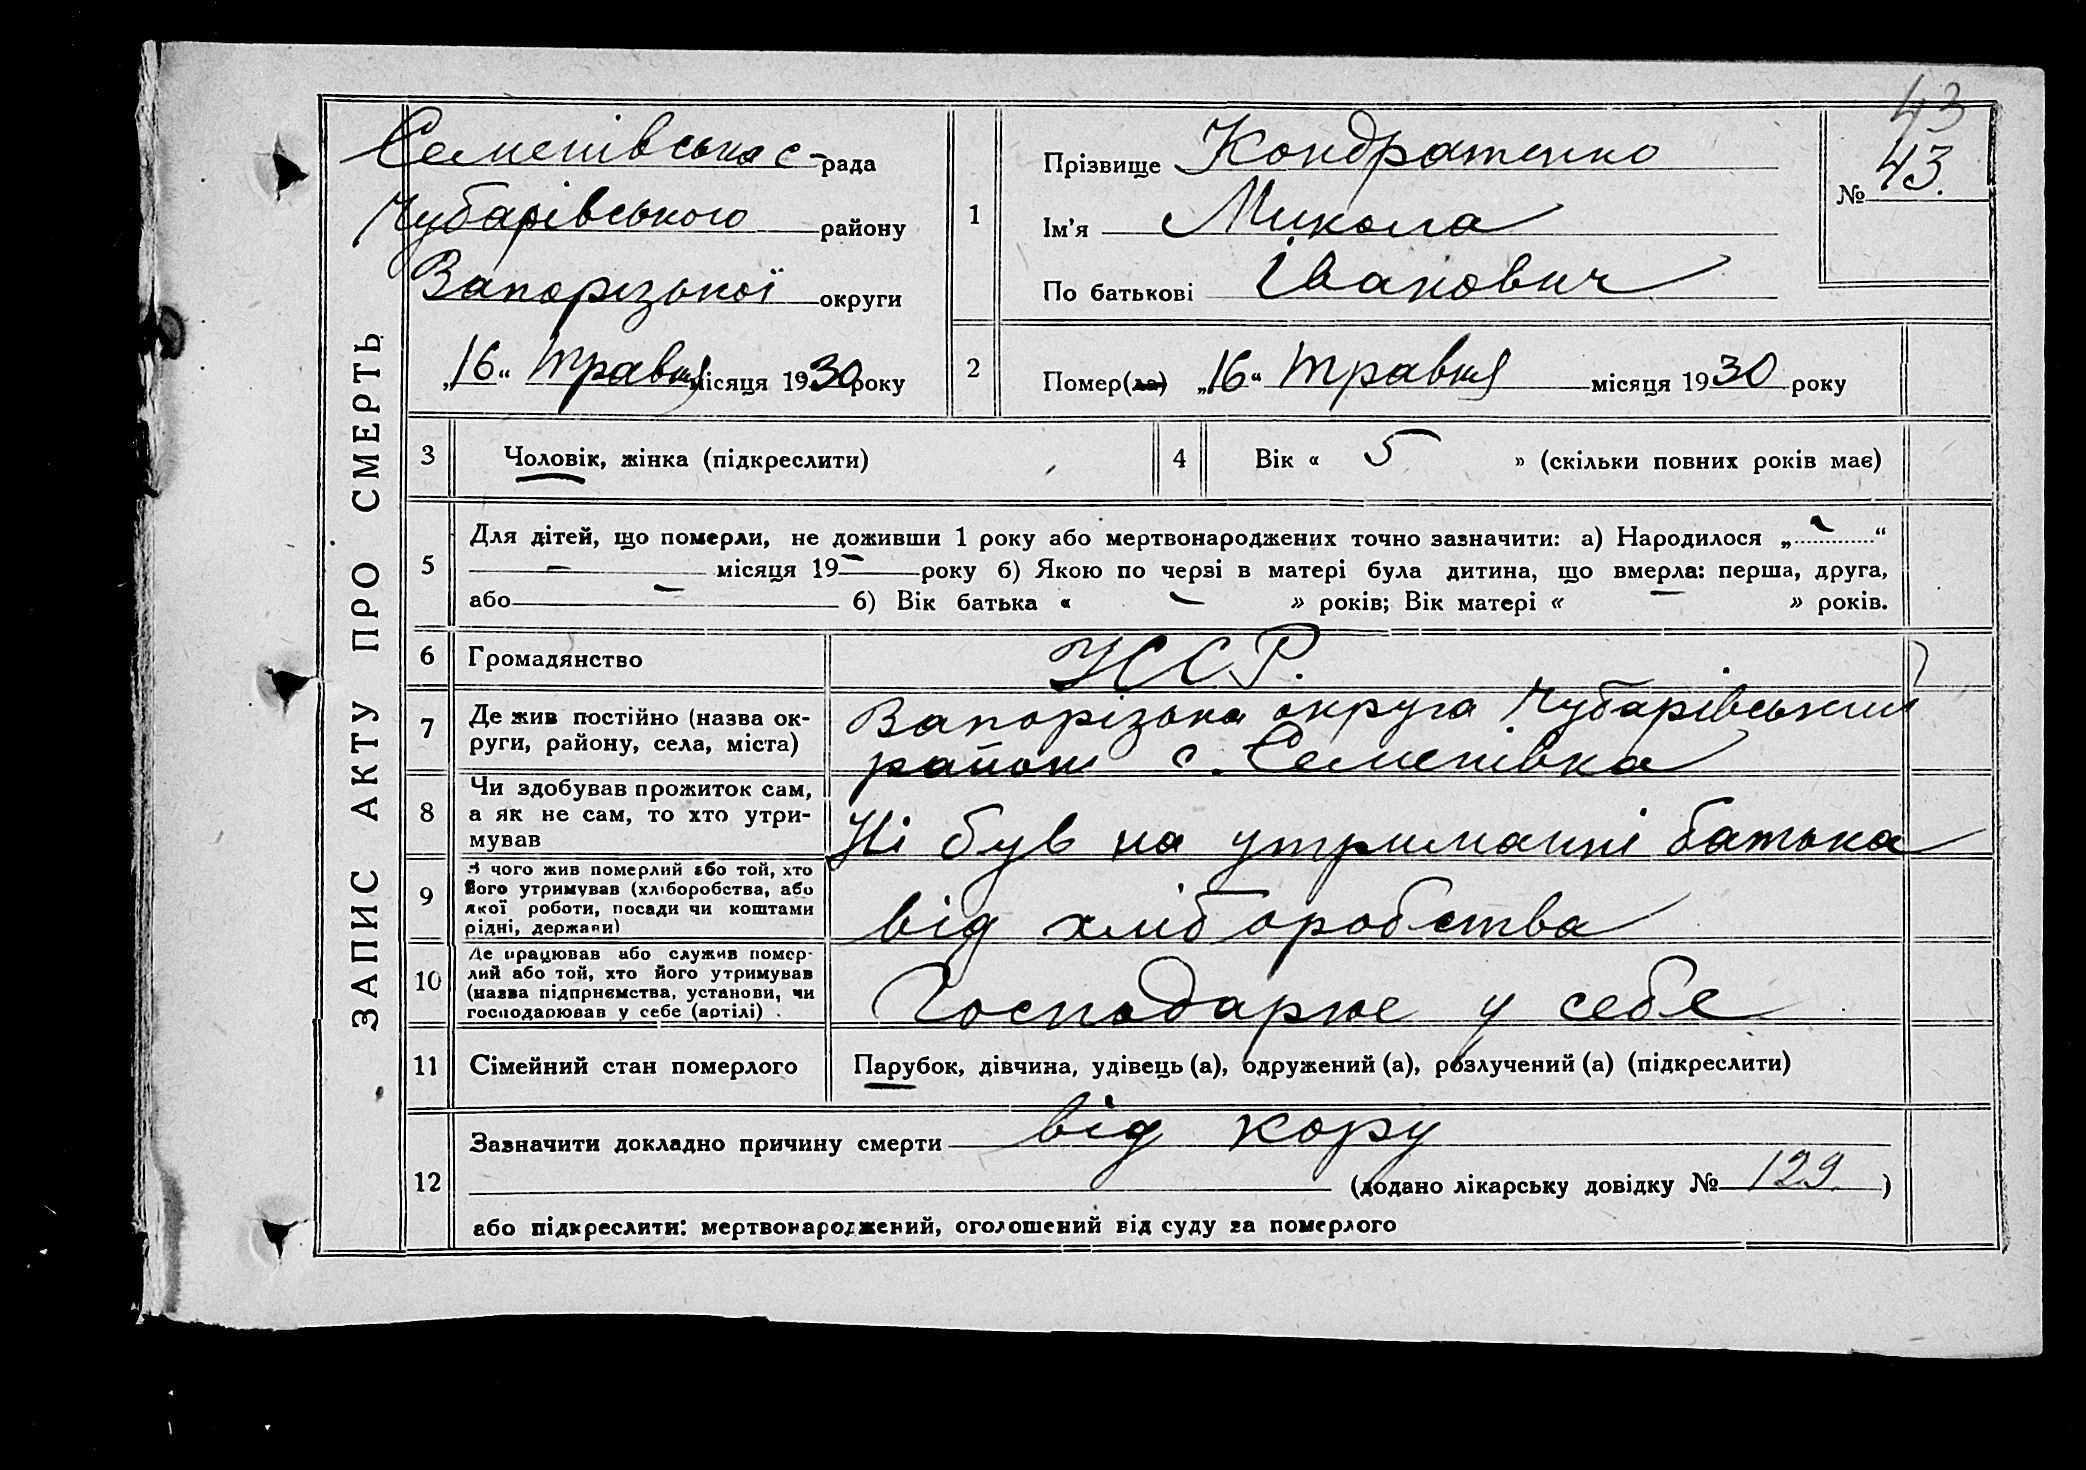 43
Семенівська с-рада
Чубарівського району
Запорізької округи
„16“ травня місяця 1930 року
ЗАПИС АКТУ ПРО СМЕРТЬ
1
Прізвище Кондратенко
Ім'я Микола
По батькові Іванович
№ 43.
2
Помер(ла) „16“ травня місяця 1930 року
3 Чоловік, жінка (підкреслити)
4 Вік « 5 » (скільки повних років має)
5
Для дітей, що померли, не доживши 1 року або мертвонароджених точно зазначити: а) Народилося „-“
- місяця 19- року б) Якою по черзі в матері була дитина, що вмерла: перша, друга,
або - б) Вік батька « - » років; Вік матері « - » років.
6 Громадянство УССР.
7
Де жив постійно (назва ок-
руги, району, села, міста)
Запорізька округа Чубарівський
район с. Семенівка
8
Чи здобував прожиток сам,
а як не сам, то хто утри-
мував
Ні був на утриманні батька
9
З чого жив померлий або той, хто
його утримував (хліборобства, або
якої роботи, посади чи коштами
рідні, держави)
від хліборобства
10
Де працював або служив помер-
лий або той, хто його утримував
(назва підприємства, установи, чи
господарював у себе (артілі)
Господарює у себе
11 Сімейний стан померлого
Парубок, дівчина, удівець (а), одружений (а), розлучений (а) (підкреслити)
12
Зазначити докладно причину смерти від кору
(додано лікарську довідку № 129.)
або підкреслити: мертвонароджений, оголошений від суду за померлого